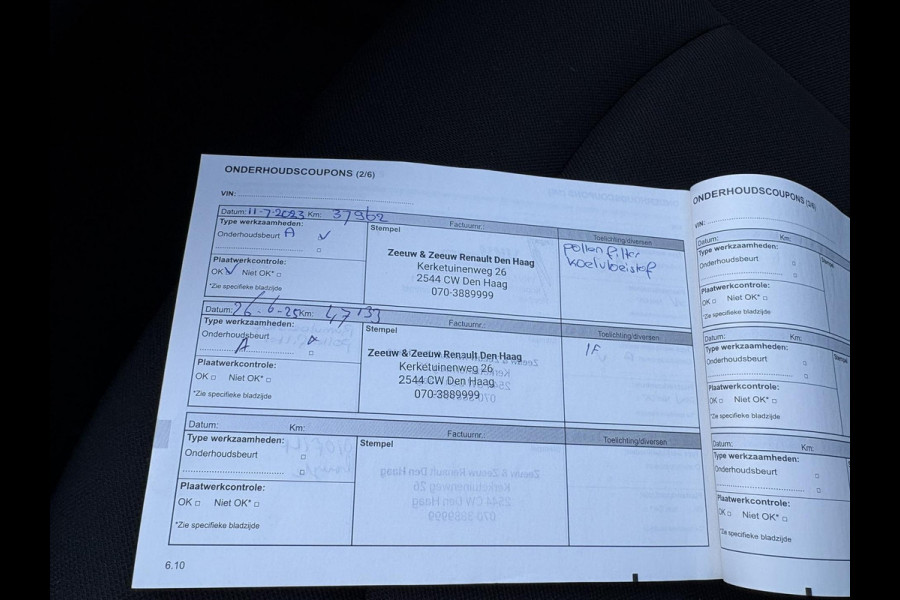 ONDERHOUDSCOUPONS (2/6)
VIN:
Datum: 11-7-2023 Km: 37962 Factuurnr.: Toelichting/diversen
Type werkzaamheden:
Onderhoudsbeurt A ✓
Stempel
Zeeuw & Zeeuw Renault Den Haag
Kerketuinenweg 26
2544 CW Den Haag
070-3889999
pollen filter
koelvloeistof
Plaatwerkcontrole:
OK ✓ Niet OK* □
*Zie specifieke bladzijde
Datum: 26-6-25 Km: 47133 Factuurnr.: Toelichting/diversen
Type werkzaamheden:
Onderhoudsbeurt
A
Stempel
Zeeuw & Zeeuw Renault Den Haag
Kerketuinenweg 26
2544 CW Den Haag
070-3889999
IF
Plaatwerkcontrole:
OK □ Niet OK* □
*Zie specifieke bladzijde
Datum: Km: Factuurnr.: Toelichting/diversen
Type werkzaamheden:
Onderhoudsbeurt □
Stempel
Plaatwerkcontrole:
OK □ Niet OK* □
*Zie specifieke bladzijde
6.10
ONDERHOUDSCOUPONS (3/6)
VIN:
Datum: Km:
Type werkzaamheden:
Onderhoudsbeurt □
Stempel
Plaatwerkcontrole:
OK □ Niet OK* □
*Zie specifieke bladzijde
Datum: Km:
Type werkzaamheden:
Onderhoudsbeurt □
Stempel
Plaatwerkcontrole:
OK □ Niet OK* □
*Zie specifieke bladzijde
Datum: Km:
Type werkzaamheden:
Onderhoudsbeurt □
Plaatwerkcontrole:
OK □ Niet OK* □
*Zie specifieke bladzijde